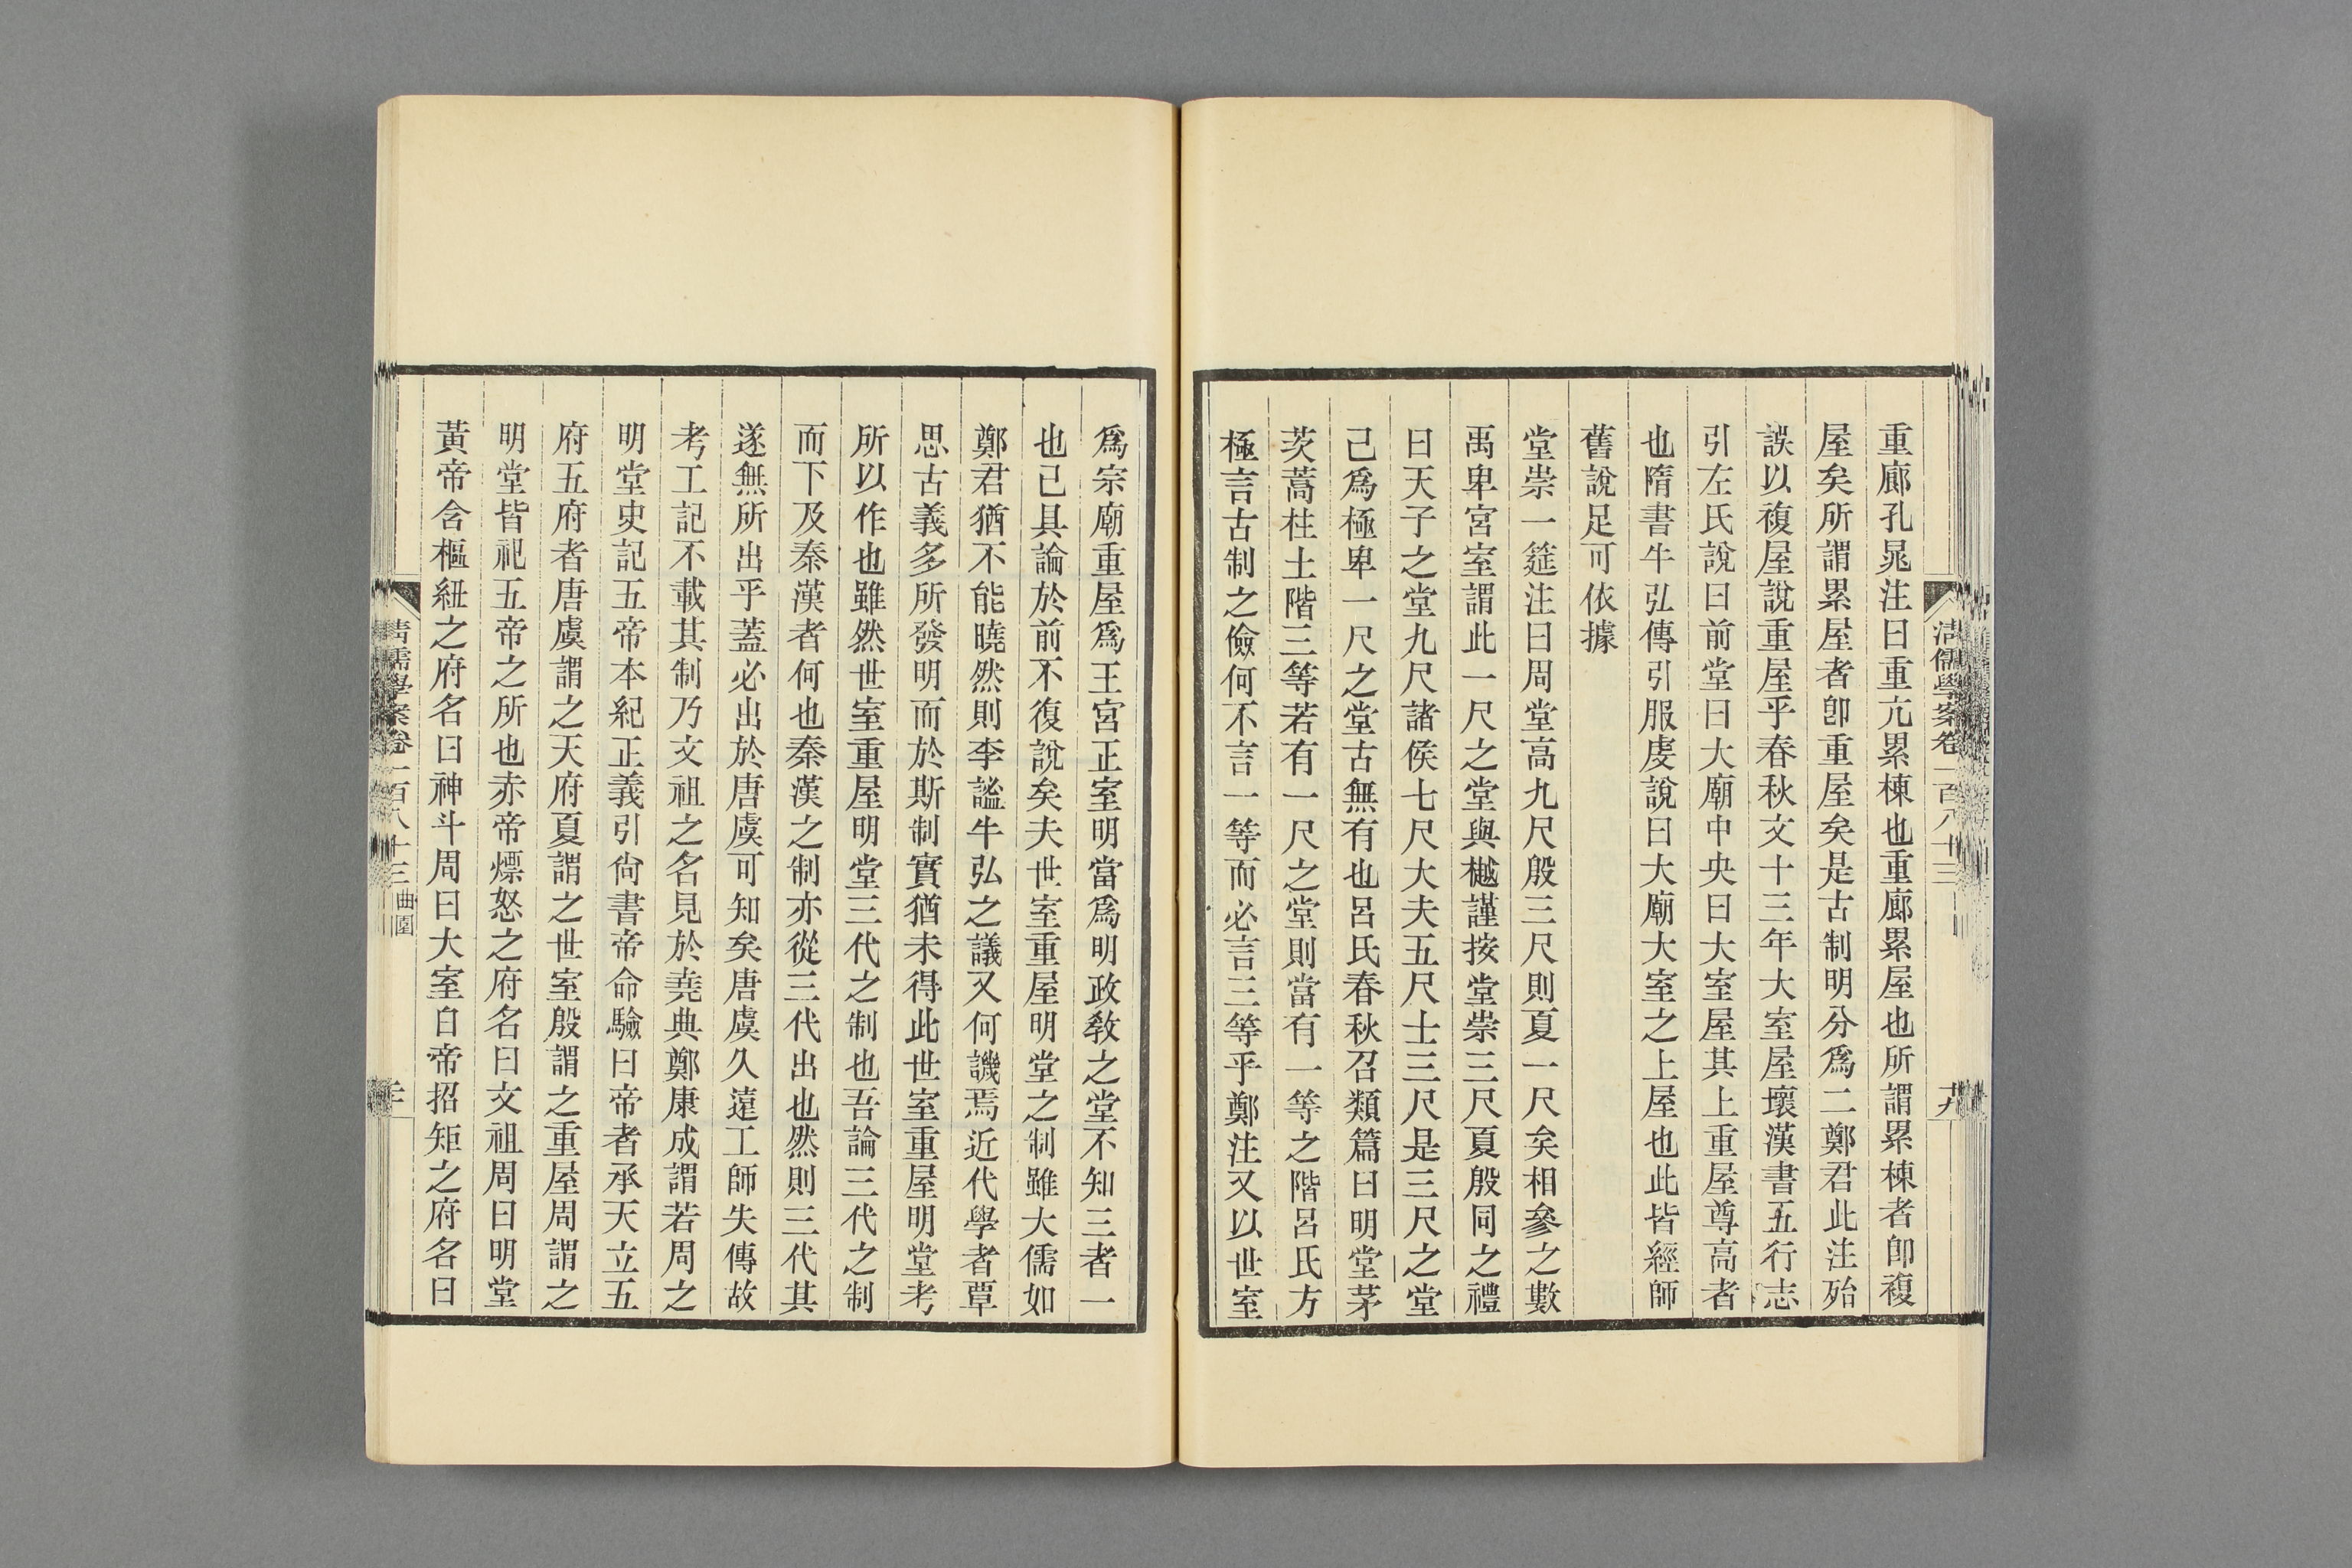 重廊孔晁注曰重亢累棟也重廊累屋也所謂累棟者卽複
屋矣所謂累屋者卽重屋矣是古制明分爲二鄭君此注殆
誤以複屋說重屋乎春秋文十三年大室屋壞漢書五行志
引左氏說曰前堂曰大廟中央曰大室屋其上重屋尊高者
也隋書牛弘傳引服虔說曰大廟大室之上屋也此皆經師
舊說足可依據
堂崇一筵注曰周堂高九尺殷三尺則夏一尺矣相參之數
禹卑宮室謂此一尺之堂與樾謹按堂崇三尺夏殷同之禮
曰天子之堂九尺諸侯七尺大夫五尺士三尺是三尺之堂
己爲極卑一尺之堂古無有也呂氏春秋召類篇曰明堂茅
茨蒿柱土階三等若有一尺之堂則當有一等之階呂氏方
極言古制之儉何不言一等而必言三等乎鄭注又以世室
清儒學案卷一百八十三
爲宗廟重屋爲王宮正室明當爲明政敎之堂不知三者一
也已具論於前不復說矣夫世室重屋明堂之制雖大儒如
鄭君猶不能曉然則李謐牛弘之議又何譏焉近代學者覃
思古義多所發明而於斯制實猶未得此世室重屋明堂考
所以作也雖然世室重屋明堂三代之制也吾論三代之制
而下及秦漢者何也秦漢之制亦從三代出也然則三代其
遂無所出乎蓋必出於唐虞可知矣唐虞久遠工師失傳故
考工記不載其制乃文祖之名見於堯典鄭康成謂若周之
明堂史記五帝本紀正義引尙書帝命驗曰帝者承天立五
府五府者唐虞謂之天府夏謂之世室殷謂之重屋周謂之
明堂皆祀五帝之所也赤帝熛怒之府名曰文祖周曰明堂
黃帝含樞紐之府名曰神斗周曰大室白帝招矩之府名曰
清儒學案卷一百八十三 曲園